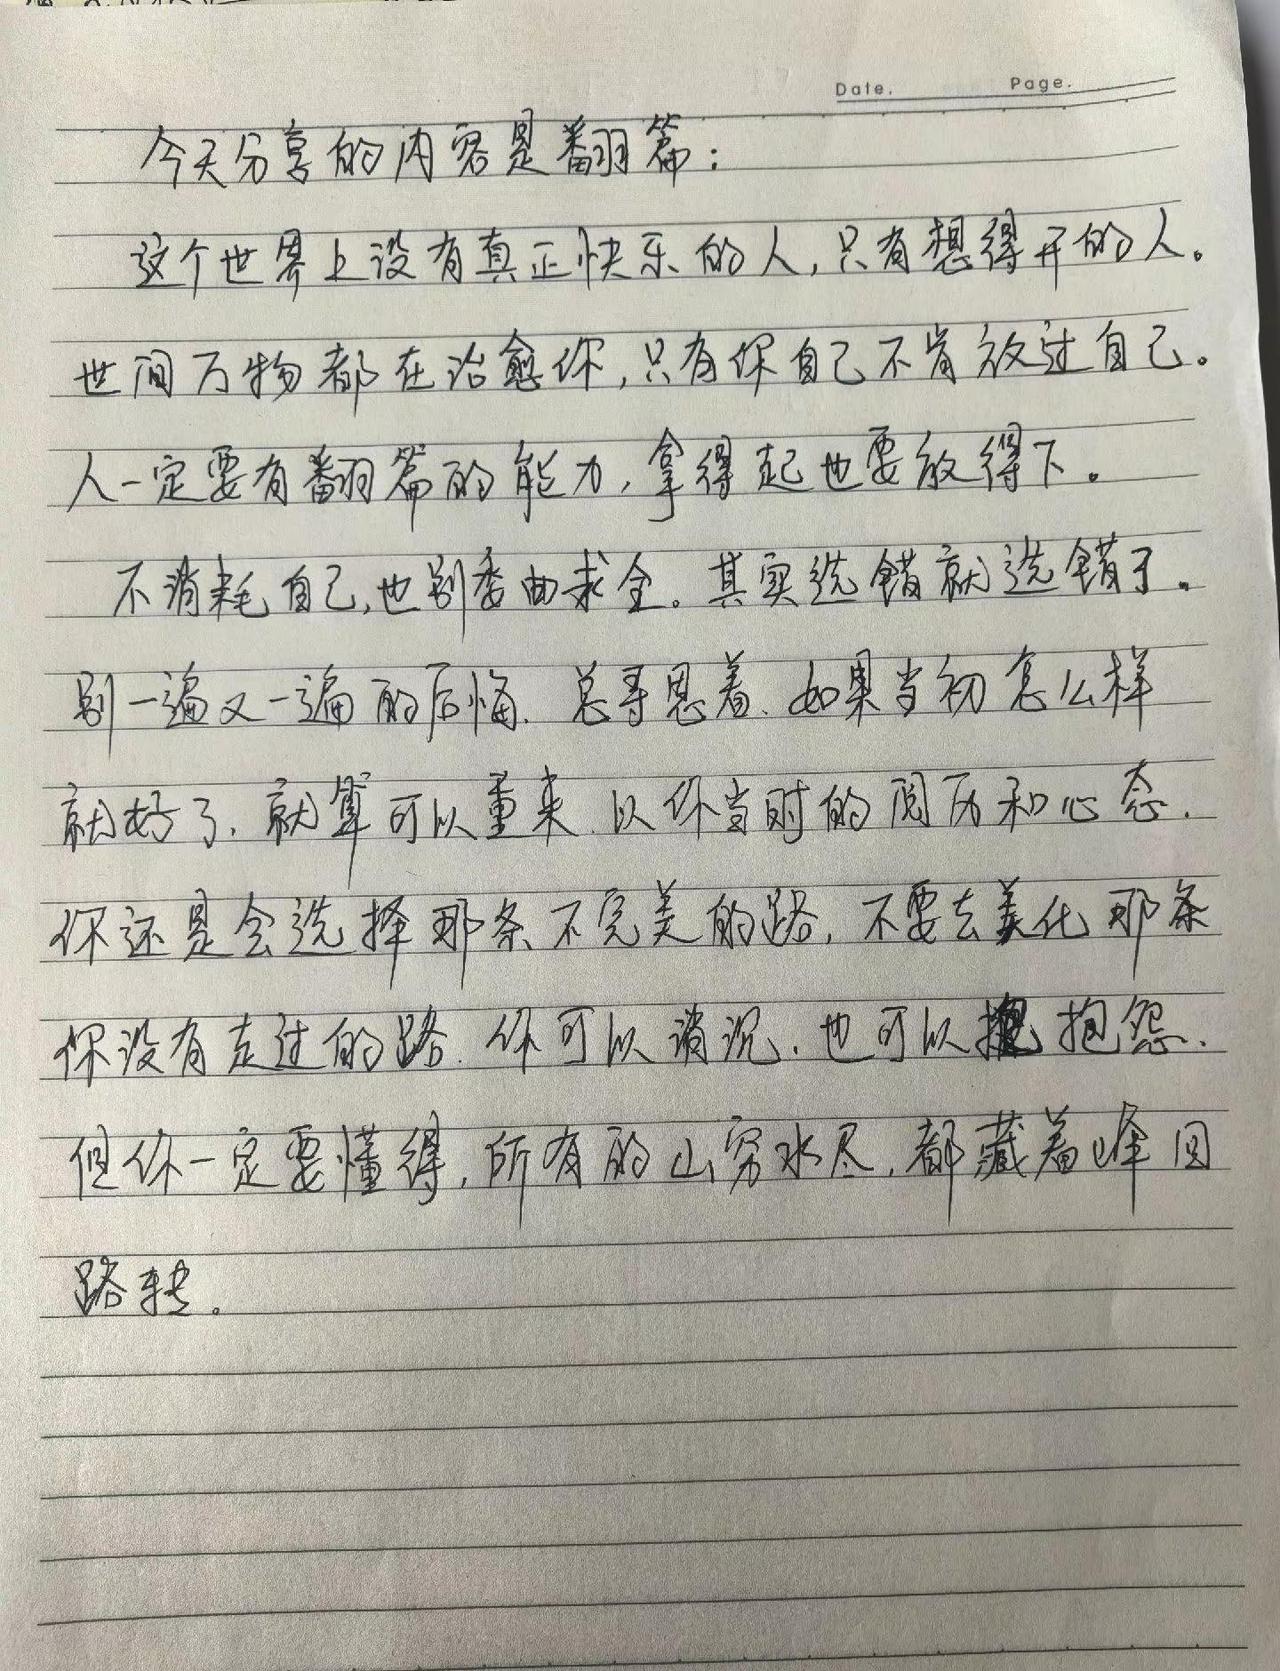 Date. Page.
今天分享的内容是翻篇：
这个世界上没有真正快乐的人，只有想得开的人。
世间万物都在治愈你，只有你自己不肯放过自己。
人一定要有翻篇的能力，拿得起也要放得下。
不消耗自己，也别委曲求全。其实选错就选错了。
别一遍又一遍的后悔．总寻思着、如果当初怎么样
就好了．就算可以重来．以你当时的阅历和心态．
你还是会选择那条不完美的路，不要去美化那条
你没有走过的路．你可以消沉．也可以抱怨．
但你一定要懂得，所有的山穷水尽．都藏着峰回
路转。